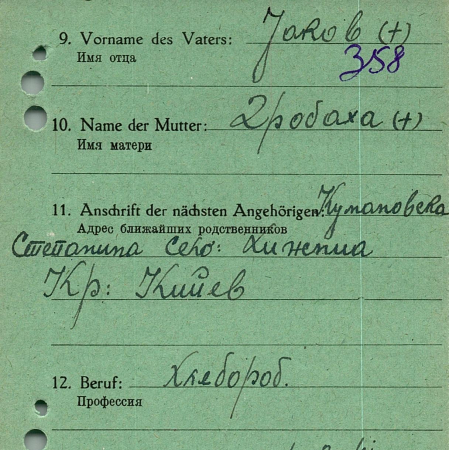 9. Vorname des Vaters: Јаков (+)
Имя отца
358
10. Name der Mutter: Гробаха (+)
Имя матери
11. Anschrift der nächsten Angehörigen: Кумановска
Адрес ближайших родственников
Степанина село: Хижниа
Кр: Кийев
12. Beruf: Хлебороб.
Профессия